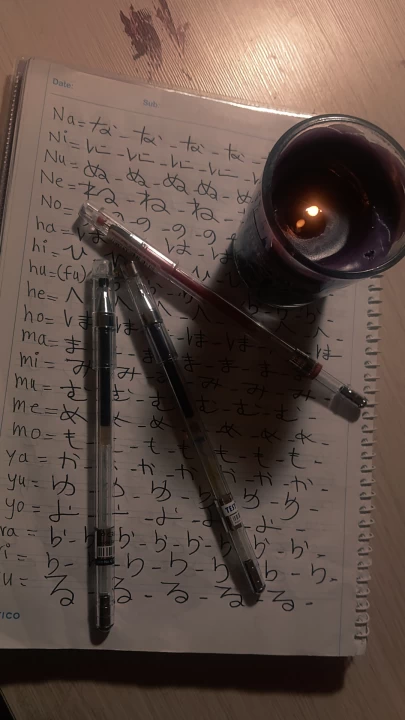 Date:
Sub:
Na= な - な - な - な -
Ni= に - に - に - に -
Nu= ぬ - ぬ - ぬ - ぬ
Ne= ね - ね - ね -
No= の - の - の
ha= は - は - は
hi= ひ
hu=(fu)
he= へ - へ -
ho= ほ - ほ - ほ
ma= ま - ま - ま -
mi= み - み - み -
mu= む - む - む - む -
me= め - め - め -
mo= も - も - も - も -
ya= か - か - か -
yu= ゆ - ゆ - ゆ - ゆ -
yo= よ - よ - よ -
ra= ら - ら - ら - ら -
ri= り - り - り - り -
u= る - る - る - る - る -
TICO